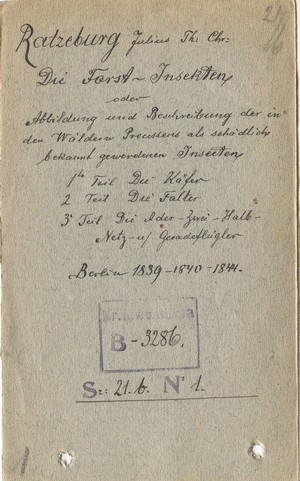 Ratzeburg Julius Th: Chr:
Die Forst-Insekten
oder
Abbildung und Beschreibung der in
den Wäldern Preussens als schädlich
bekannt gewordenen Insecten
1te Teil Die Käfer
2 Teil Die Falter
3r Teil Die Ader-Zwei-Halb-
Netz- u/ Geradeflügler
Berlin 1839-1840-1844.
B-3286.
Sz: 21.b. No 1.
1